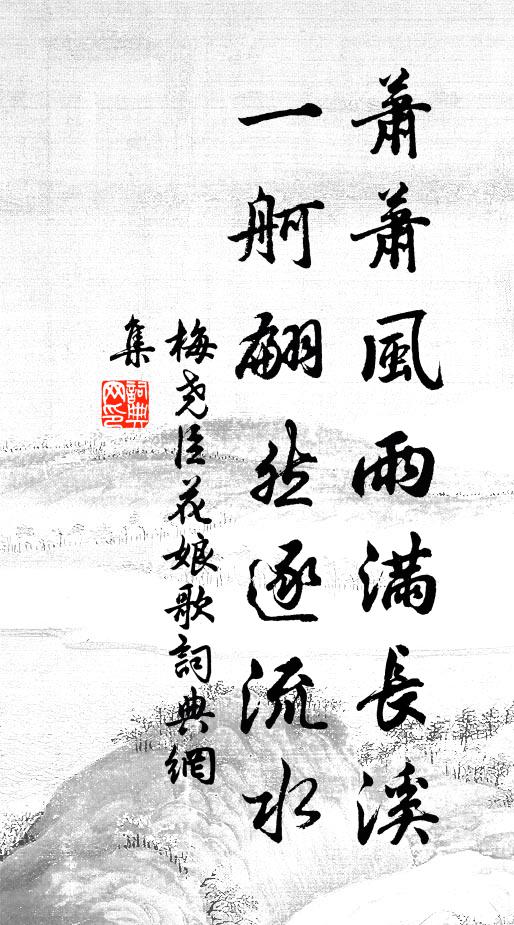 蕭蕭風雨滿長溪
一舸翩然逐流水
梅尧臣花娘歌詞典網
集
詞典
网印